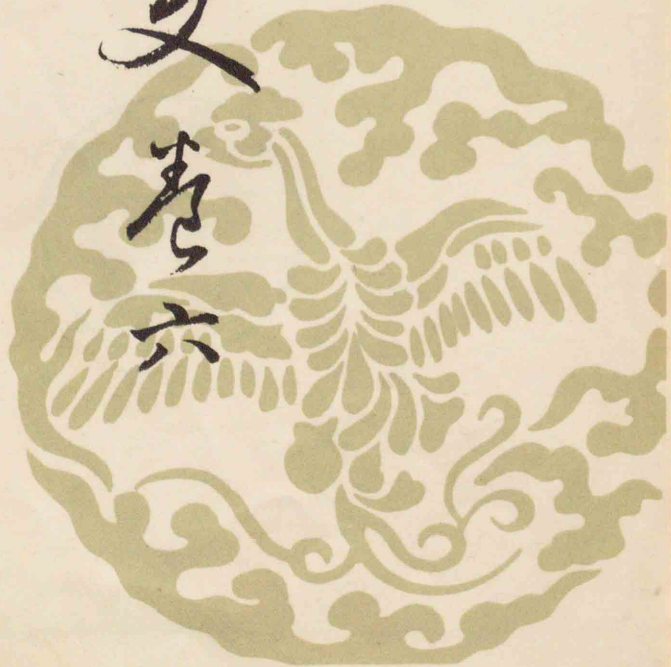 文卷六